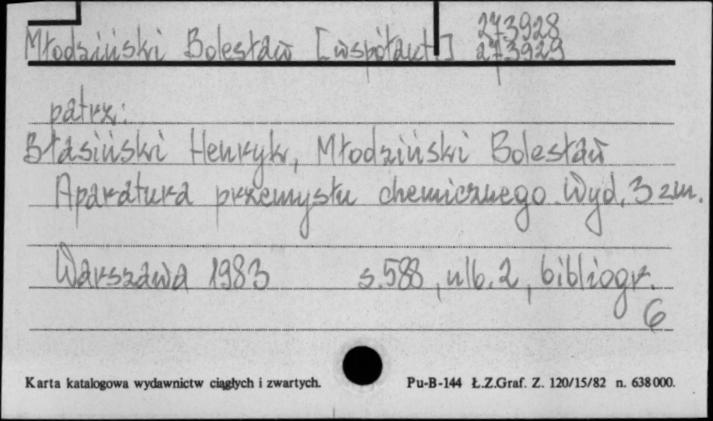 273928
Młodziński Bolesław [współaut] 273929
patrz:
Błasiński Henryk, Młodziński Bolesław
Aparatura przemysłu chemicznego. Wyd. 3 zm.
Warszawa 1983 s. 588, nlb. 2, bibliogr.
6
Karta katalogowa wydawnictw ciągłych i zwartych. Pu-B-144 Ł.Z.Graf. Z. 120/15/82 n. 638000.